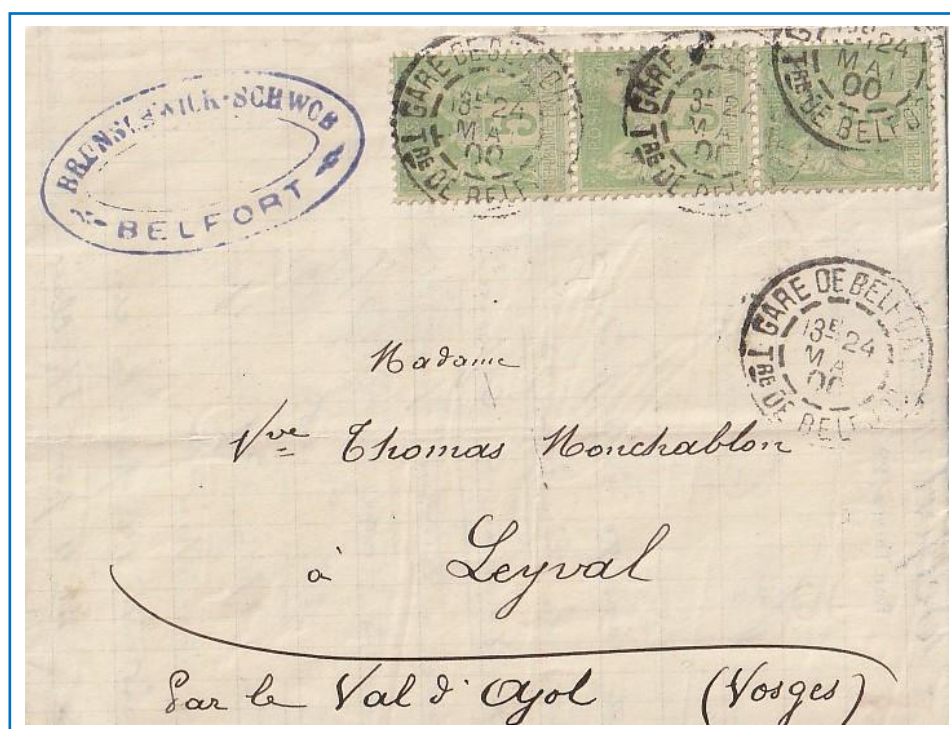 BRUNSCHWICK-SCHWOB
BELFORT
GARE DE BELFORT
13E 24
MAI
00
TRE DE BELFORT
GARE DE BELFORT
13E 2
MAI
00
TRE DE BELFORT
24
MAI
00
TRE DE BELFORT
GARE DE BELFORT
13E 24
MAI
00
TRE DE BELFORT
Madame
Vve Thomas Monchablon
à Leyval
Par le Val d'Ajol (Vosges)